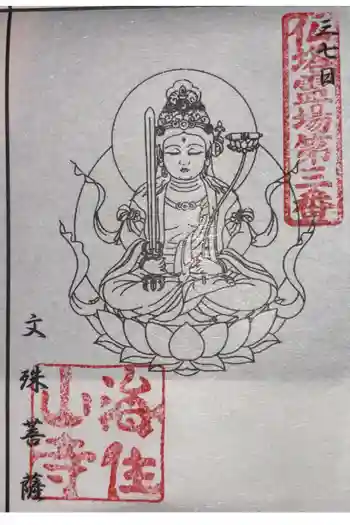 三七日
仏塔霊場第三番
文殊菩薩
治住
山寺